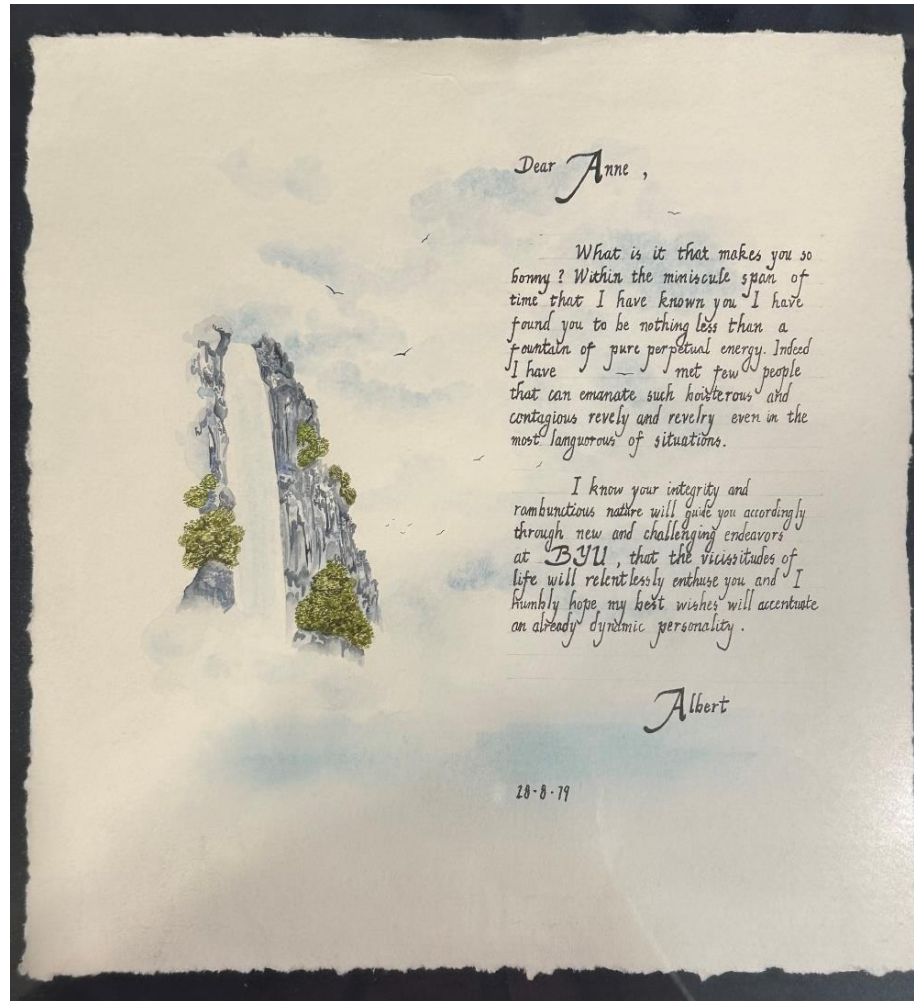 Dear Anne,
What is it that makes you so
bonny? Within the miniscule span of
time that I have known you I have
found you to be nothing less than a
fountain of pure perpetual energy. Indeed
I have — met few people
that can emanate such boisterous and
contagious revely and revelry even in the
most languorous of situations.
I know your integrity and
rambunctious nature will guide you accordingly
through new and challenging endeavors
at BYU, that the vicissitudes of
life will relentlessly enthuse you and I
humbly hope my best wishes will accentuate
an already dynamic personality.
Albert
28-8-79